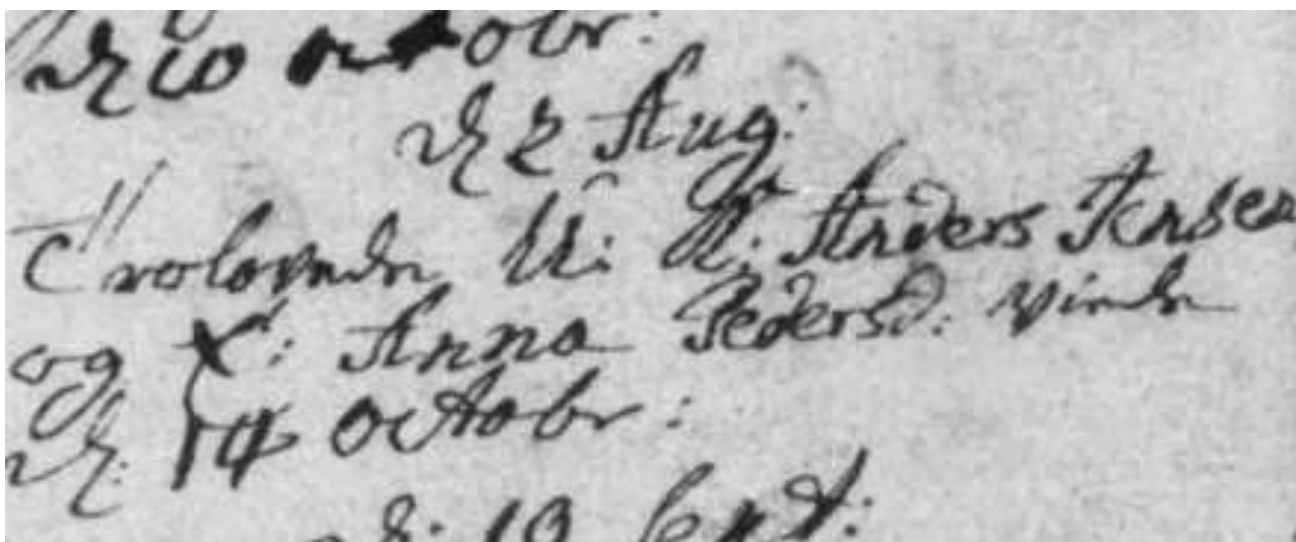 dz 10 octobr:
dz 2 Aug:
Trolovede U: K: Anders Jensen
og Anna Pedersd: viede
dz. 14 octobr:
d: 19 Sept: